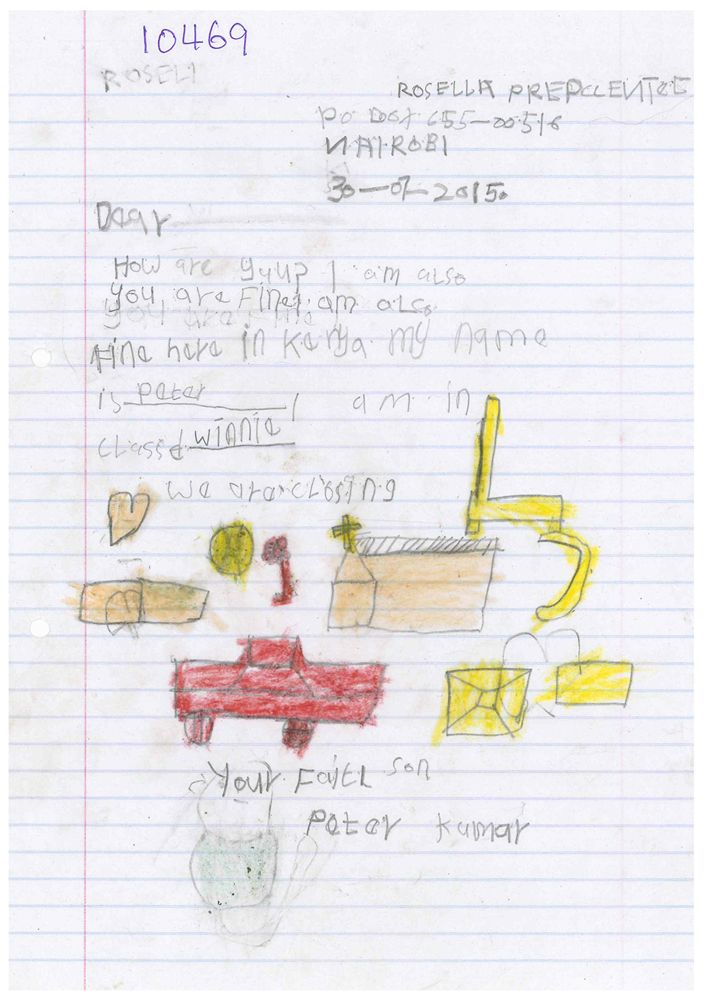 10469
ROSELI
ROSELLA PREPCLENTRE
po Box 655-00516
NAIROBI
30-07-2015.
Dear
How are you? I am also
you are Fine I am also
Fine here in Kenya. my name
is peter I am in
class winnie
we are closing
Your Faitl son
Peter Kamar